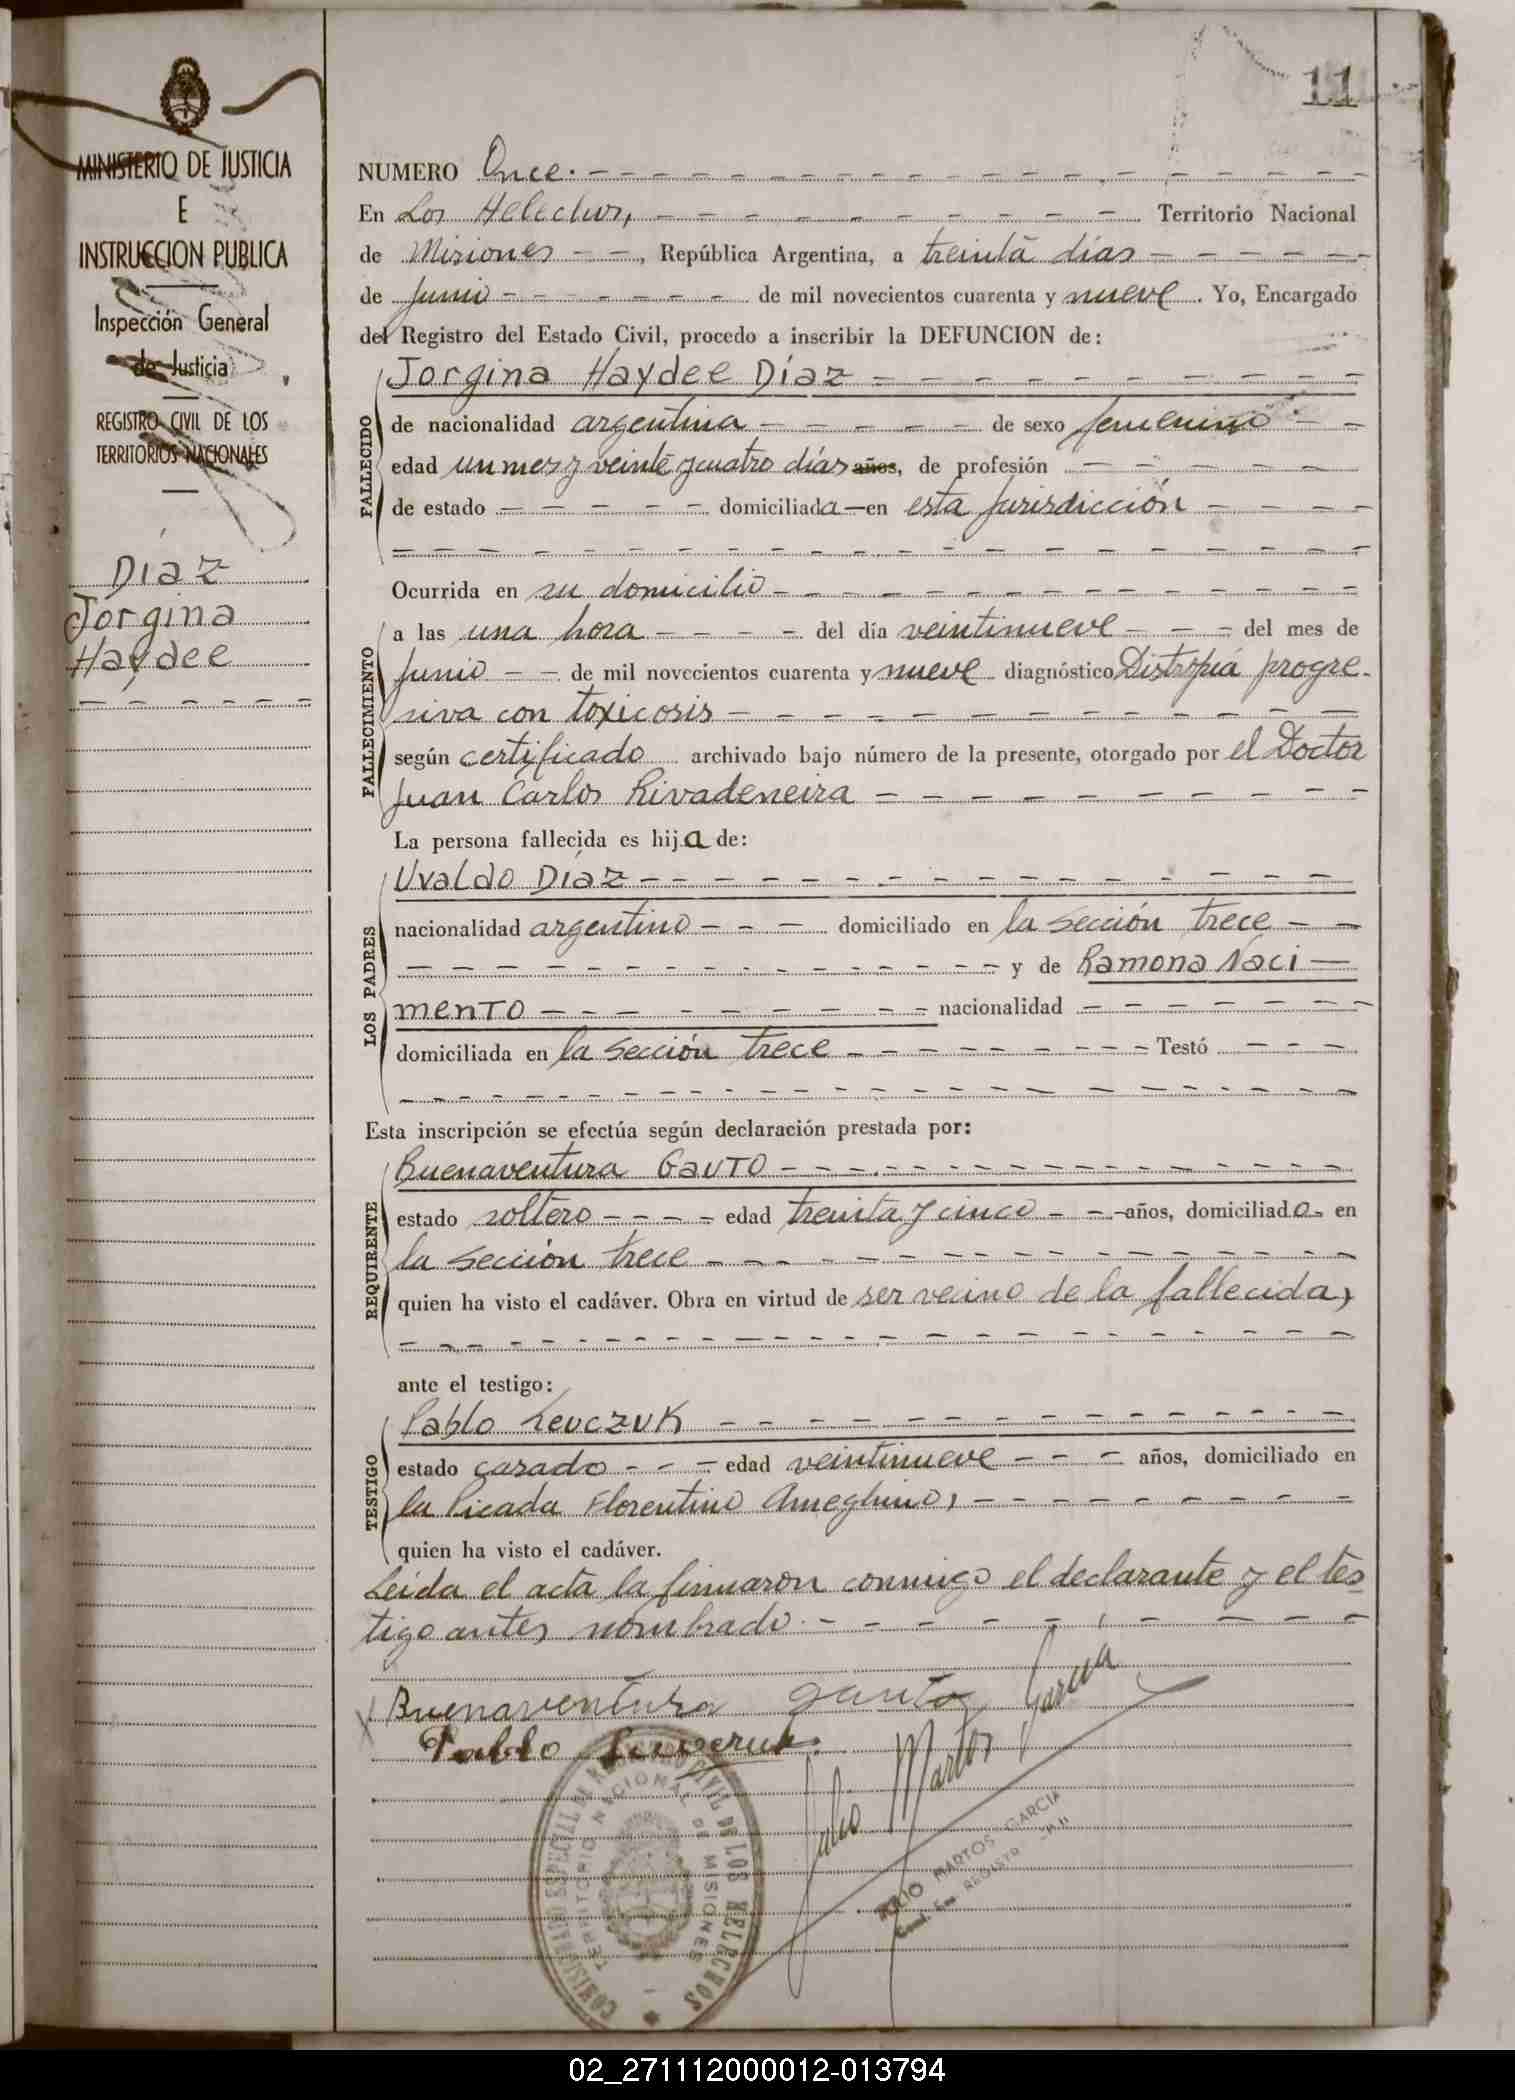 11
MINISTERIO DE JUSTICIA
E
INSTRUCCION PUBLICA
Inspección General
de Justicia
REGISTRO CIVIL DE LOS
TERRITORIOS NACIONALES
Díaz
Jorgina
Haydee
NUMERO Once.
En Los Helechos, Territorio Nacional
de Misiones, República Argentina, a treinta días
de junio de mil novecientos cuarenta y nueve. Yo, Encargado
del Registro del Estado Civil, procedo a inscribir la DEFUNCION de:
FALLECIDO
Jorgina Haydee Díaz
de nacionalidad argentina de sexo femenino
edad un mes y veinte y cuatro días años, de profesión
de estado domiciliada en esta jurisdicción
FALLECIMIENTO
Ocurrida en su domicilio
a las una hora del día veintinueve del mes de
junio de mil novecientos cuarenta y nueve diagnóstico Distrofia progre-
siva con toxicosis
según certificado archivado bajo número de la presente, otorgado por el Doctor
Juan Carlos Rivadeneira
La persona fallecida es hija de:
LOS PADRES
Uvaldo Díaz
nacionalidad argentino domiciliado en la sección trece
y de Ramona Naci-
mento nacionalidad
domiciliada en la sección trece Testó
Esta inscripción se efectúa según declaración prestada por:
REQUIRENTE
Buenaventura Gauto
estado soltero edad treinta y cinco años, domiciliado en
la sección trece
quien ha visto el cadáver. Obra en virtud de ser vecino de la fallecida,
ante el testigo:
TESTIGO
Pablo Leuczuk
estado casado edad veintinueve años, domiciliado en
la Picada Florentino Ameghino,
quien ha visto el cadáver.
Leída el acta la firmaron conmigo el declarante y el tes
tigo antes nombrado.
Buenaventura Gauto
Pablo
Julio Martos García
JULIO MARTOS GARCIA
COMISARIADO ESPECIAL DE REGISTRO CIVIL DE LOS HELECHOS
TERRITORIO NACIONAL DE MISIONES
02_271112000012-013794